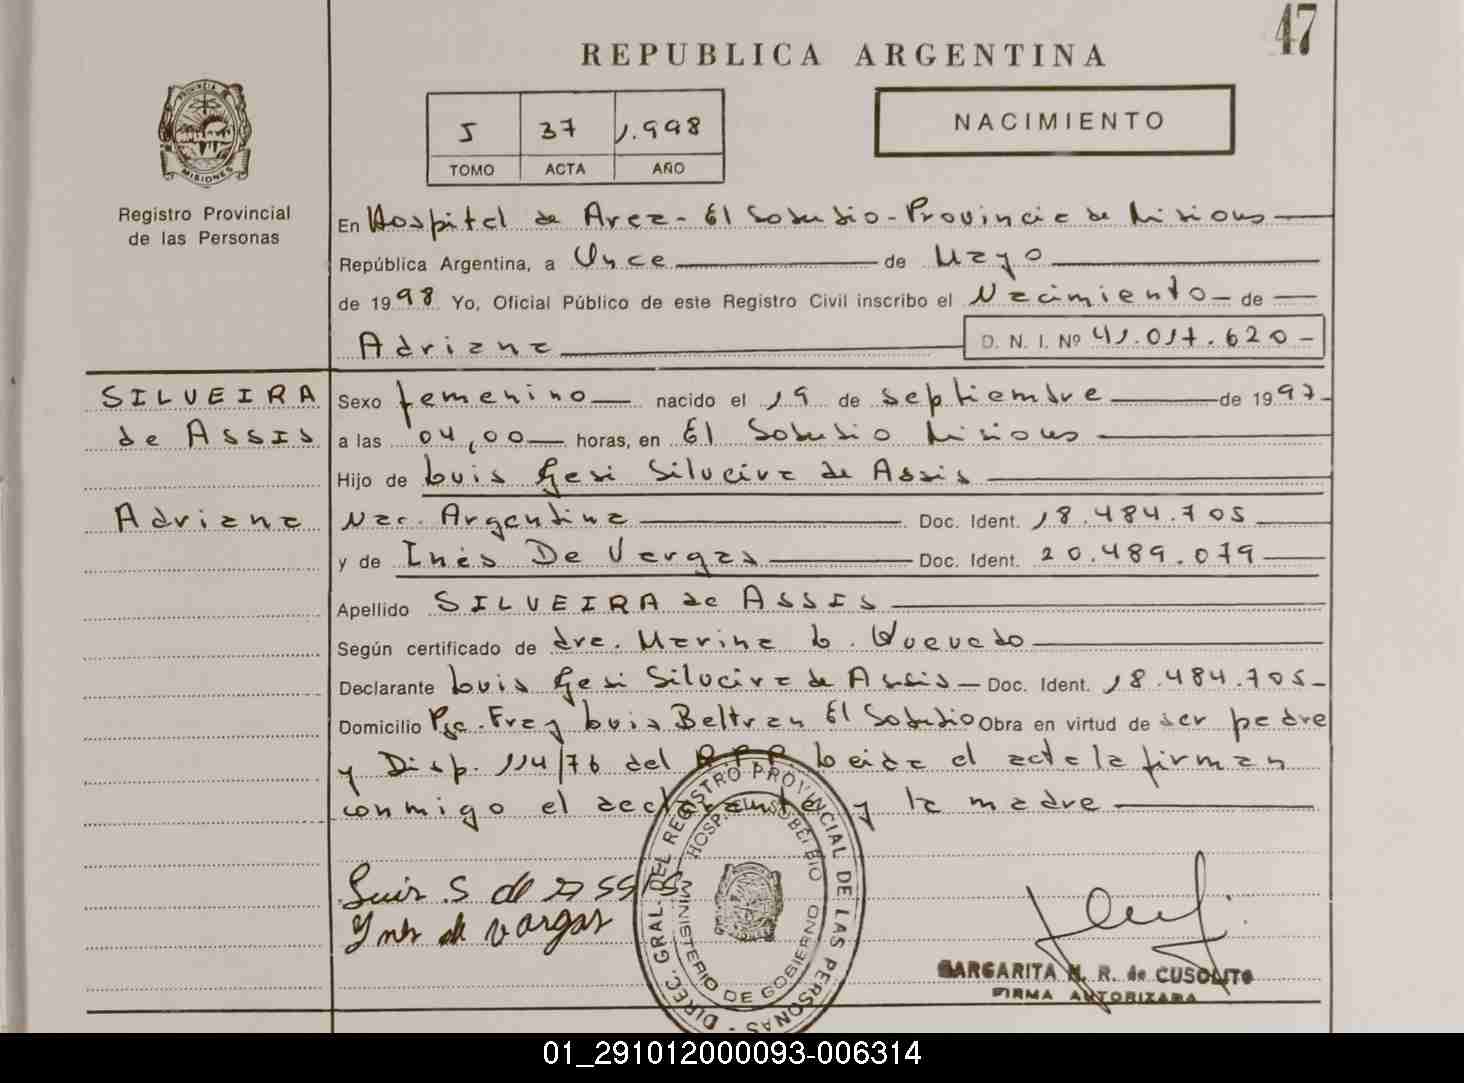 47
REPUBLICA ARGENTINA
PROVINCIA DE
MISIONES
5 37 1.998
TOMO ACTA AÑO
NACIMIENTO
Registro Provincial
de las Personas
En Hospital de Area - El Soberbio - Provincia de Misiones
República Argentina, a Once de Mayo
de 1998 Yo, Oficial Público de este Registro Civil inscribo el Nacimiento de
Adriana D. N. I. Nº 41.017.620-
SILVEIRA
de ASSIS
Adriana
Sexo femenino nacido el 19 de septiembre de 1997-
a las 04,00 horas, en El Soberbio Misiones
Hijo de Luis Gesi Silveira de Assis
Nac. Argentina Doc. Ident. 18.484.705
y de Inés De Vargas Doc. Ident. 20.489.079
Apellido SILVEIRA de ASSIS
Según certificado de dra. Marina L. Quevedo
Declarante Luis Gesi Silveira de Assis - Doc. Ident. 18.484.705-
Domicilio Pje. Fray Luis Beltran El Soberbio Obra en virtud de ser padre
y Disp. 114/76 del RPP Leida el acta la firman
conmigo el declarante y la madre
Luis S de assis
Ines de vargas
DIREC. GRAL. DEL REGISTRO PROVINCIAL DE LAS PERSONAS -
MINISTERIO DE GOBIERNO
HOSP. EL SOBERBIO
MARGARITA N. R. de CUSOLITO
FIRMA AUTORIZADA
01_291012000093-006314